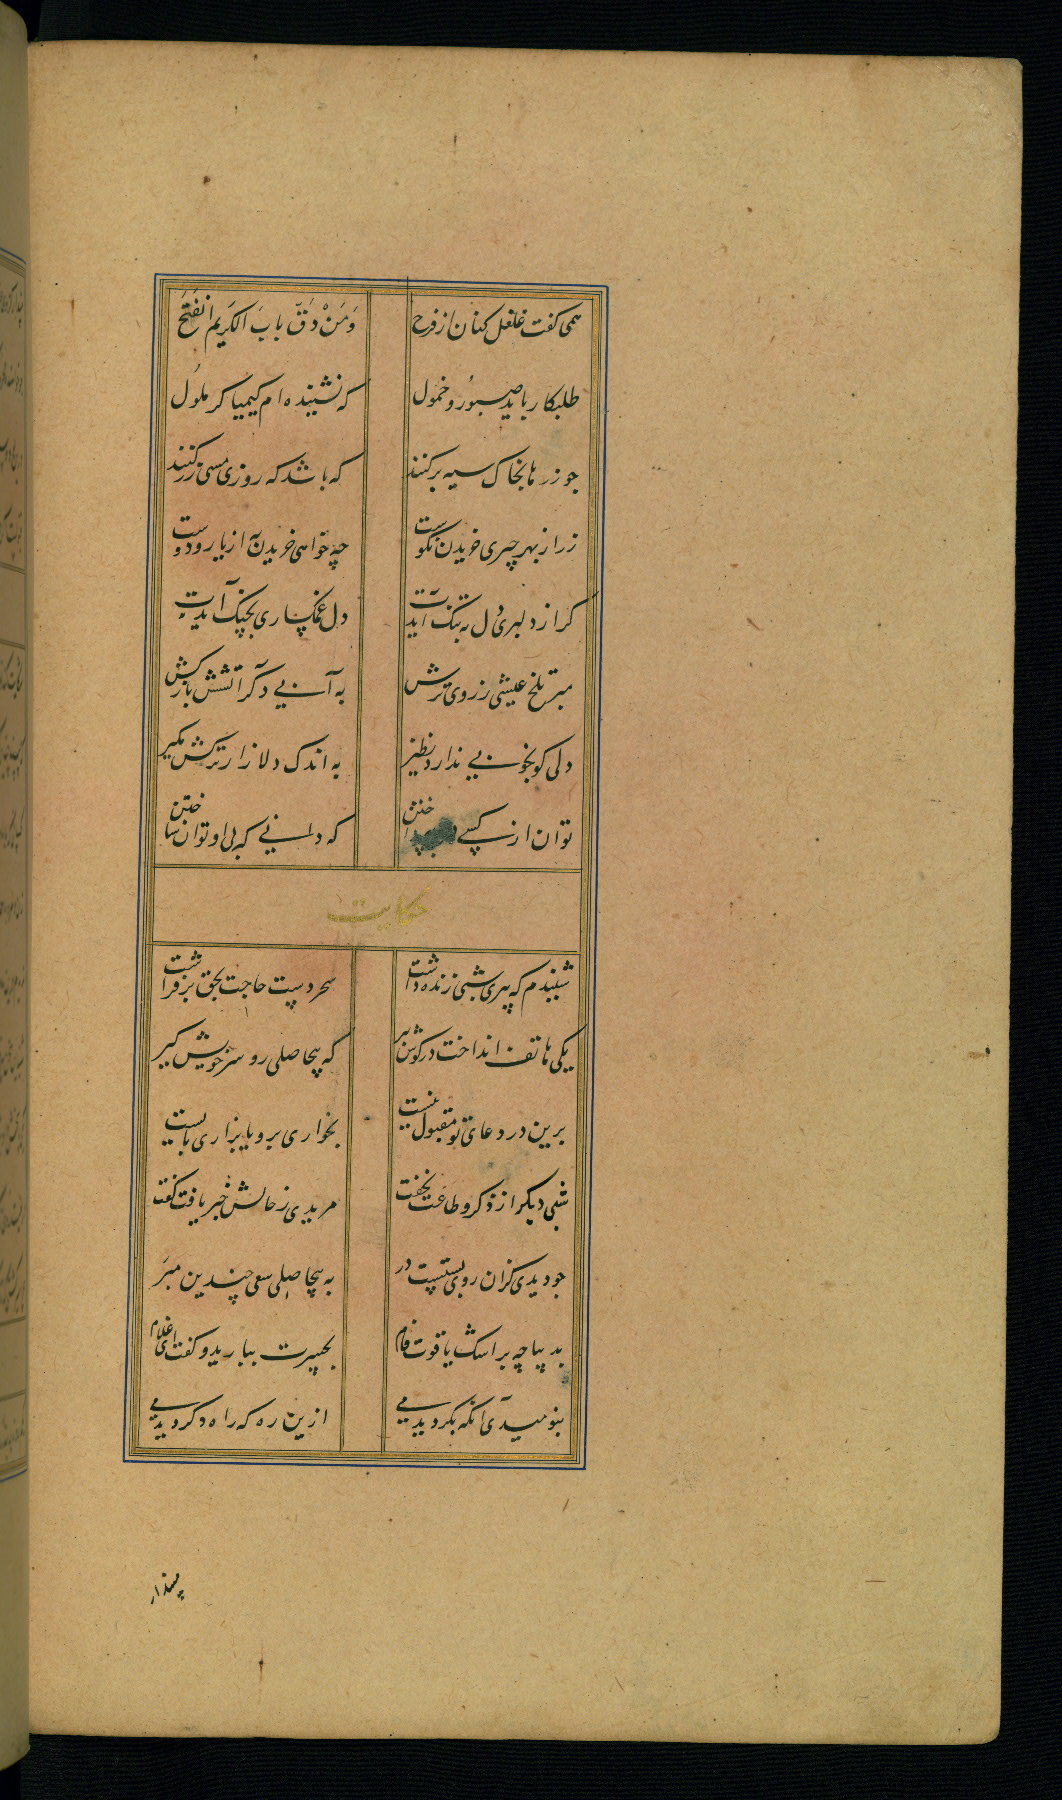 همی گفت غلغل کنان از فرح وَمَنْ دَقّ بابَ الکَریم انفَتَحَ
طلبکار باید صبور و خمول که نشینده ام کیمیاکر ملُول
جو زرها بخاک سیه برکنند که باشد که روزی مسی زر کنند
زر از بهر چیزی خریدن نکوست چه خواهی خریدن به از یار و دوست
کر از دلبری دل به تنک آیدت دل غمکساری بچنک آیدت
مبر تلخ عیشی ز روی ترش به آبی دکر آتشش بازکش
دلی کو بخوبی ندارد نظیر به اندک دلازار ترکش مکیر
توان از کسی پرداختن که دانی که بی او توان ساختن
حکایت
شنیدم که پیری شبی زنده داشت سحر دست حاجت بحق برفراشت
یکی هاتف انداخت در کوش پیر که بیحاصلی رو سر خویش کیر
برین در دعای تو مقبول نیست بخواری برو یا بزاری بایست
شبی دیکر از ذکر و طاعت نخفت مریدی ز حالش خبر یافت کفت
جو دیدی کزان روی بستست در به بیحاصلی سعی چندین مبَر
بدیباجه بر اشک یاقوت فام بحسرت ببارید و کفت ای غلام
بنومیدی آنکه بکردیدمی ازین ره که راه دکر دیدمی
مپندار